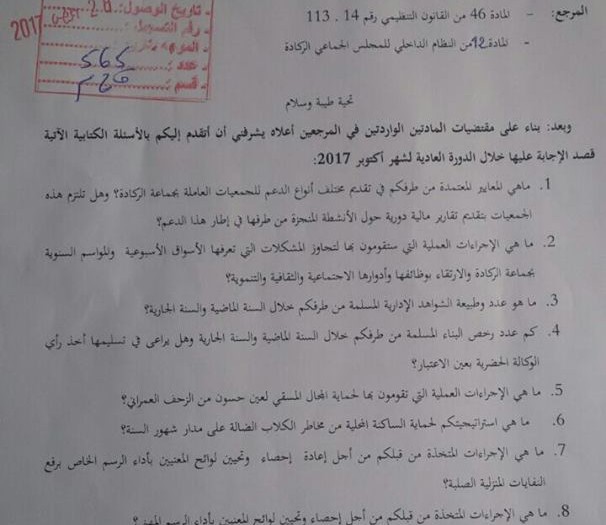 تاريخ الوصول:
2017
رقم التسجيل:
565
عدد:
قسم:
المرجع: - المادة 46 من القانون التنظيمي رقم 14 . 113
- المادة 12 من النظام الداخلي للمجلس الجماعي الركادة
تحية طيبة وسلام
وبعد: بناء على مقتضيات المادتين الواردتين في المرجعين أعلاه يشرفني أن أتقدم إليكم بالأسئلة الكتابية الآتية
قصد الإجابة عليها خلال الدورة العادية لشهر أكتوبر 2017:
1. ماهي المعايير المعتمدة من طرفكم في تقديم مختلف أنواع الدعم للجمعيات العاملة بجماعة الركادة؟ وهل تلتزم هذه
الجمعيات بتقديم تقارير مالية دورية حول الأنشطة المنجزة من طرفها في إطار هذا الدعم؟
2. ما هي الإجراءات العملية التي ستقومون بها لتجاوز المشكلات التي تعرفها الأسواق الأسبوعية والمواسم السنوية
بجماعة الركادة والارتقاء بوظائفها وأدوارها الاجتماعية والثقافية والتنموية؟
3. ما هو عدد وطبيعة الشواهد الإدارية المسلمة من طرفكم خلال السنة الماضية والسنة الجارية؟
4. كم عدد رخص البناء المسلمة من طرفكم خلال السنة الماضية والسنة الجارية وهل يراعى في تسليمها أخذ رأي
الوكالة الحضرية بعين الاعتبار؟
5. ما هي الإجراءات العملية التي تقومون بها لحماية المجال المسقي لعين حسون من الزحف العمراني؟
6. ما هي استراتيجيتكم لحماية الساكنة المحلية من مخاطر الكلاب الضالة على مدار شهور السنة؟
7. ما هي الإجراءات المتخذة من قبلكم من أجل إعادة إحصاء وتحيين لوائح المعنيين بأداء الرسم الخاص برفع
النفايات المنزلية الصلبة؟
8. ما هي الإجراءات المتخذة من قبلكم من أجل إحصاء وتحيين لوائح المعنيين بأداء الرسم المهني؟